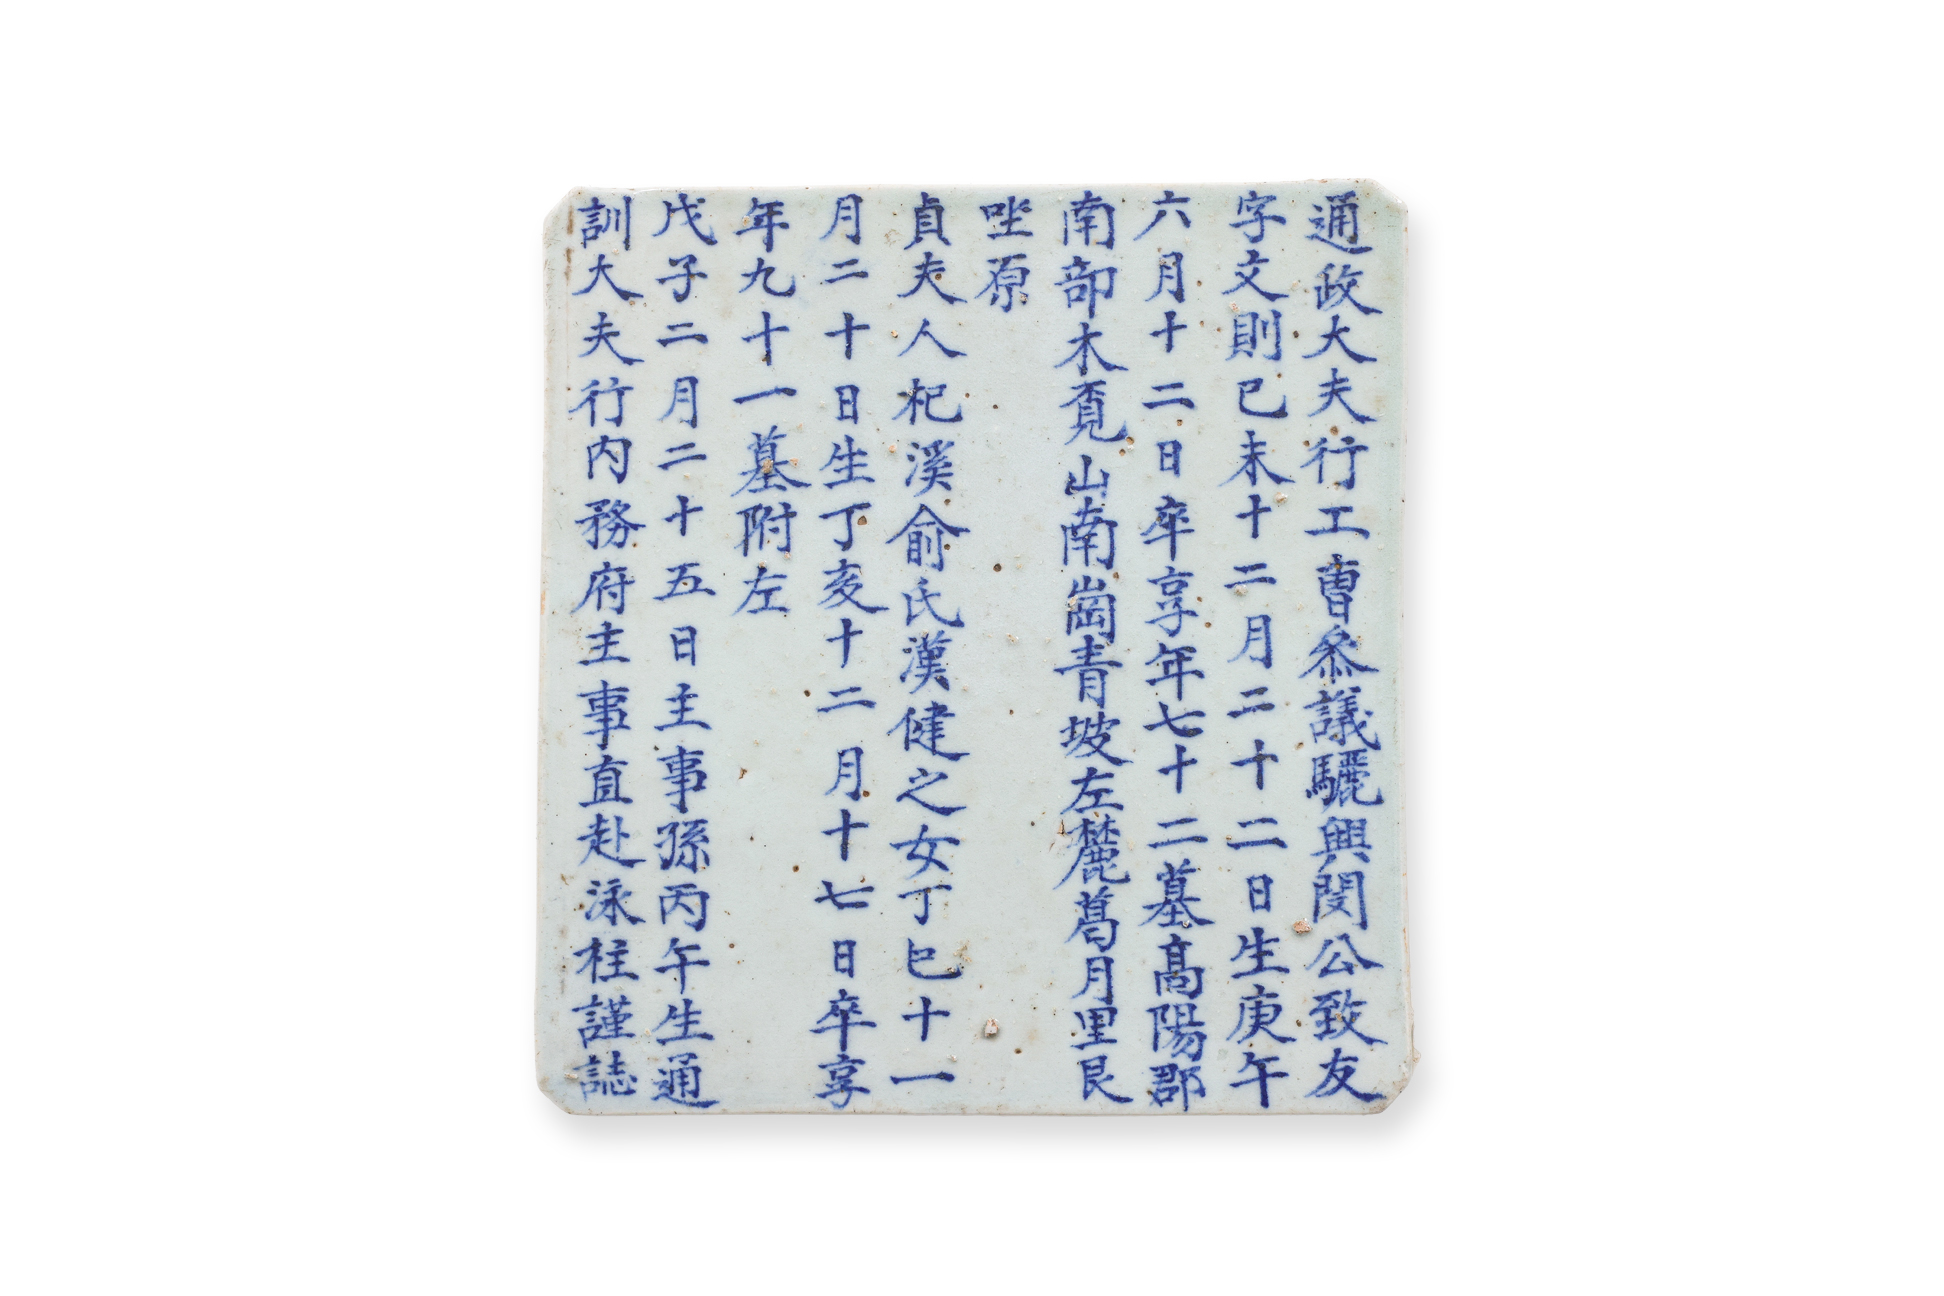 通政大夫行工曺叅議驪興閔公致友
字文則己未十二月二十二日生庚午
六月十二日卒享年七十二墓高陽郡
南部木覓山南崗青坡左麓葛月里艮
坐原
貞夫人杞溪俞氏漢健之女丁巳十一
月二十日生丁亥十二月十七日卒享
年九十一墓附左
戊子二月二十五日主事孫丙午生通
訓大夫行內務府主事直赴泳柱謹誌